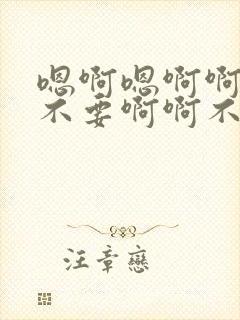 嗯啊嗯啊啊
不要啊啊不
汪章恋